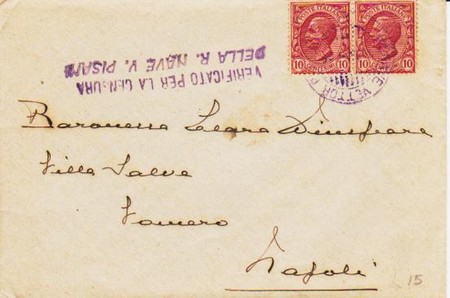 POSTE ITALIANE POSTE ITALIANE
10 10 10 10
VERIFICATO PER LA CENSURA
DELLA R. NAVE V. PISANI
NAVE VETTOR P
Baronessa
Villa Salve
Vomero
Napoli
15